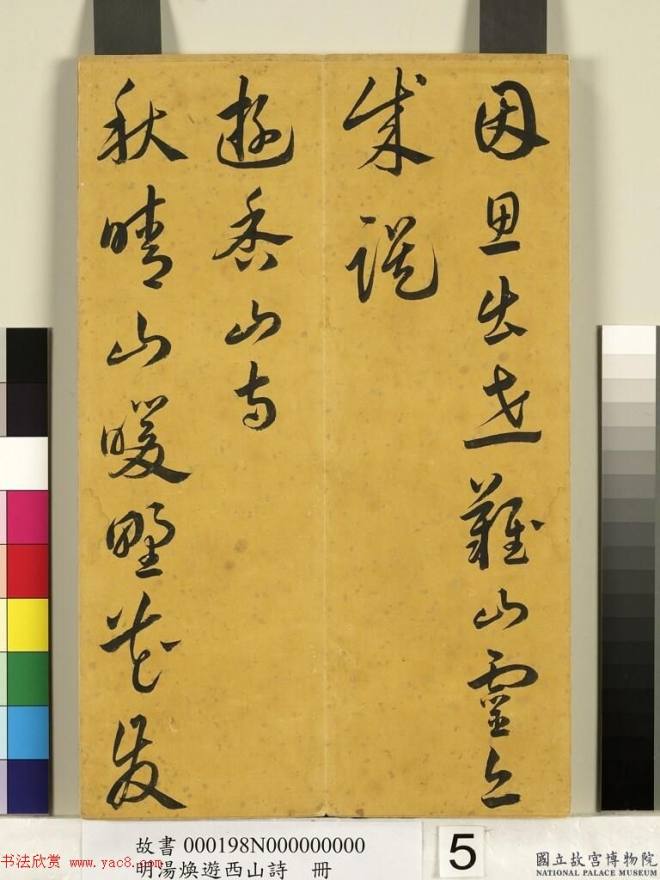 因思出世難山靈
成
遊香山寺
秋晴山暖野花發
故書 000198N000000000
明湯煥遊西山詩 冊
5
國立故宮博物院
NATIONAL PALACE MUSEUM
书法欣赏 www.yac8.com